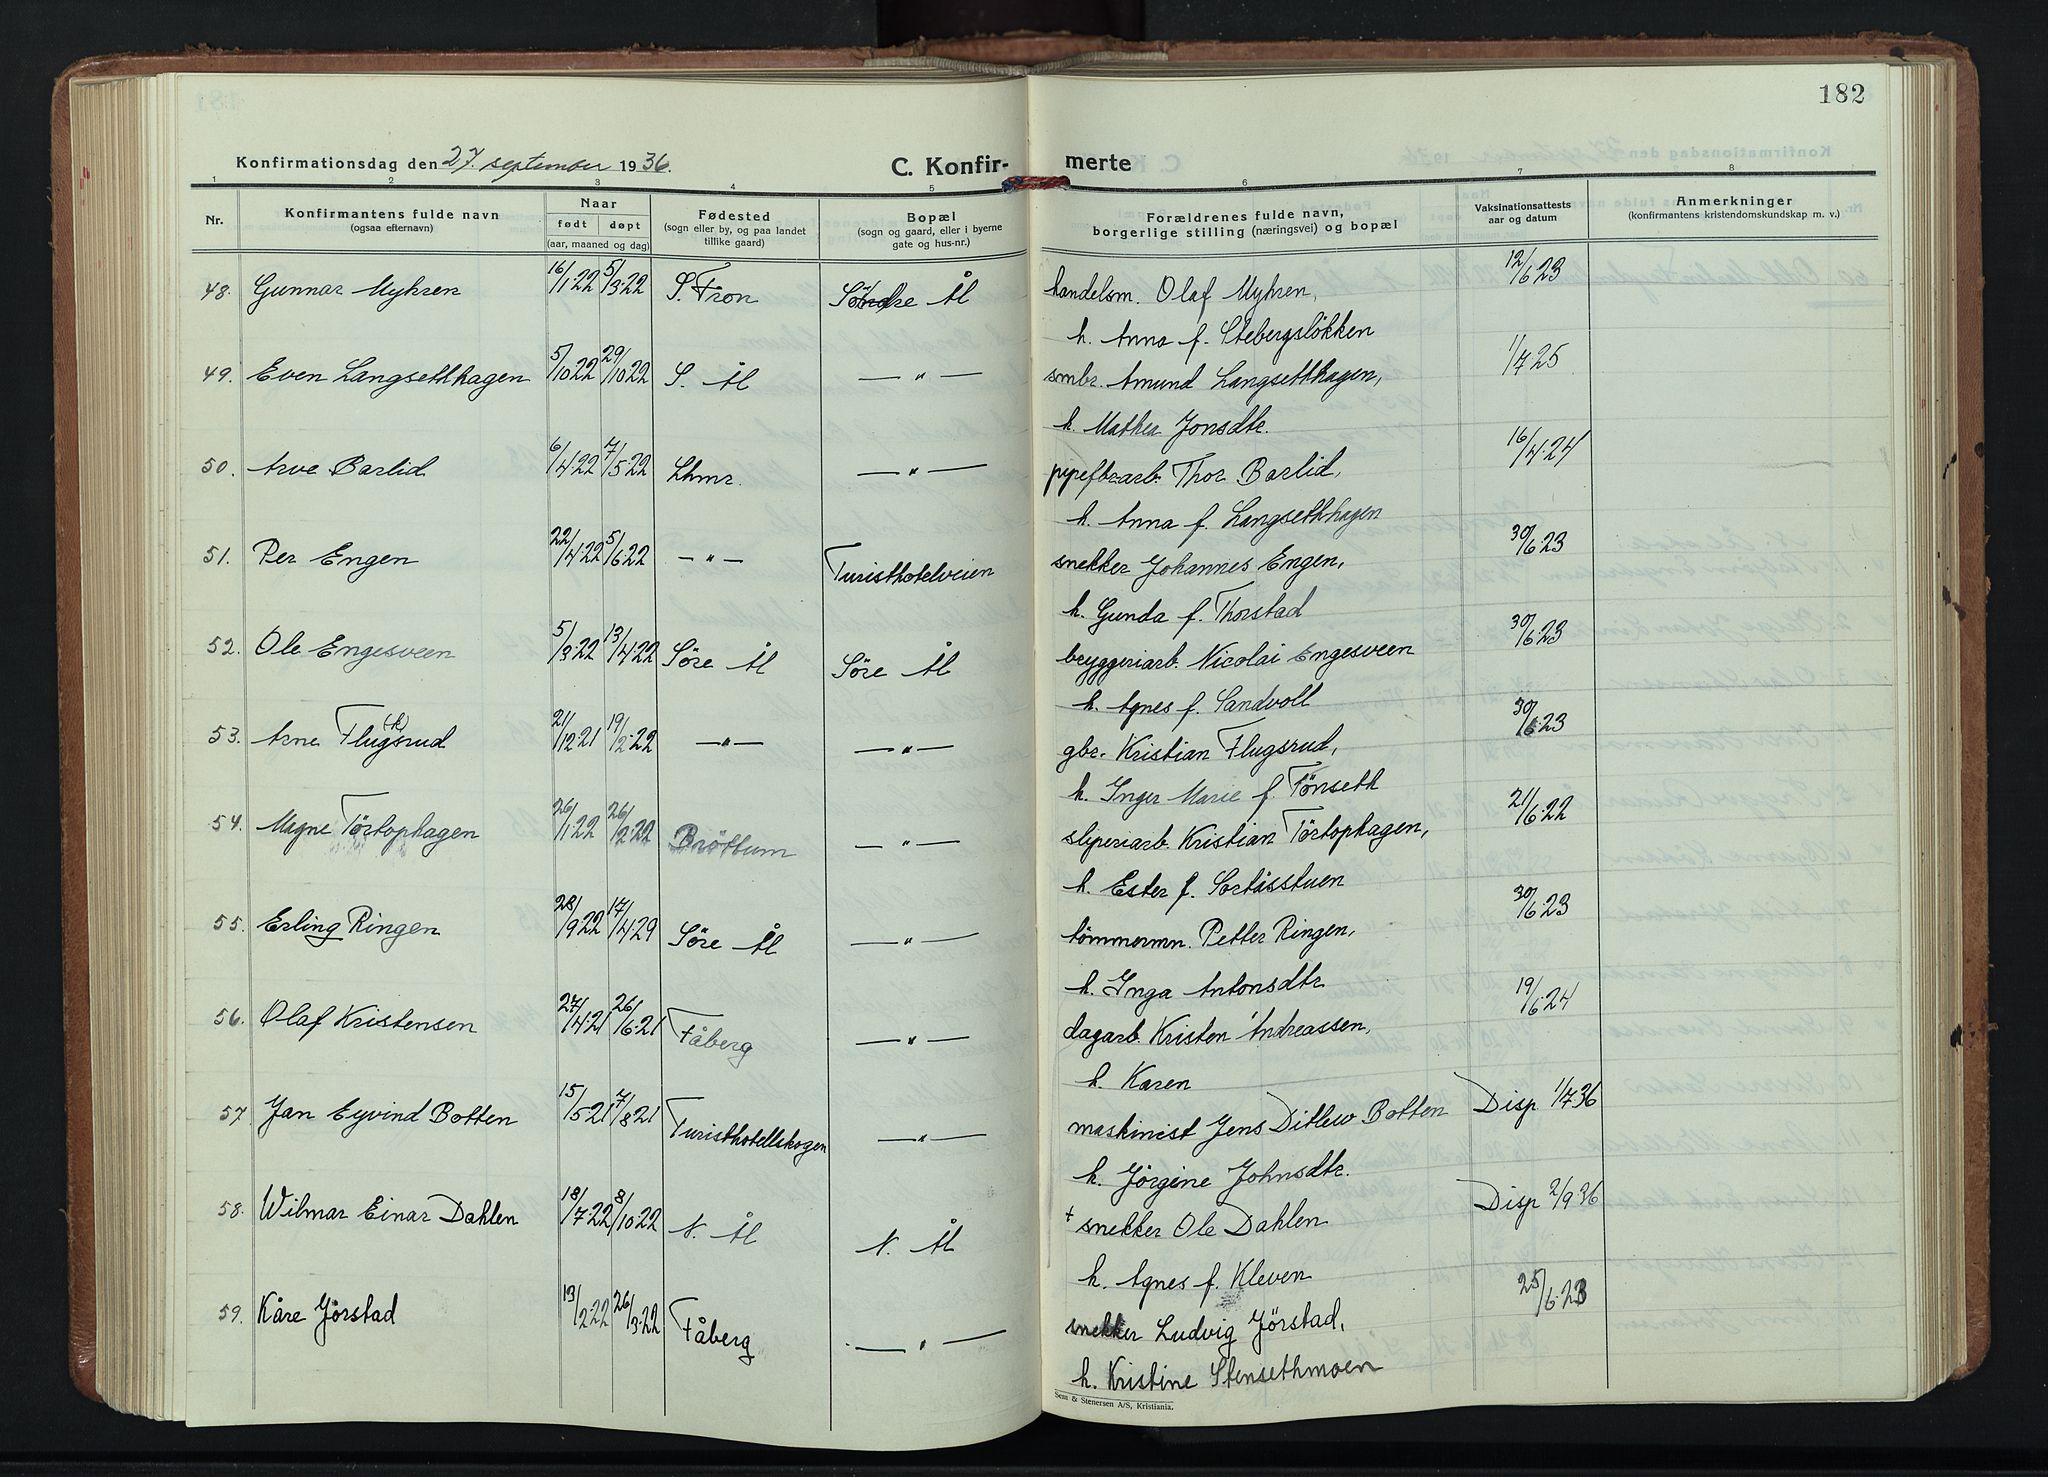 182
Konfirmationsdag den 27. september 1936.
C. Konfir- merte
1 2 3 4 5 6 7 8
Nr. Konfirmantens fulde navn (ogsaa efternavn) Naar født døpt (aar, maaned og dag) Fødested (sogn eller by, og paa landet tillike gaard) Bopæl (sogn og gaard, eller i byerne gate og hus-nr.) Forældrenes fulde navn, borgerlige stilling (næringsvei) og bopæl Vaksinationsattests aar og datum Anmerkninger (konfirmantens kristendomskundskap m. v.)
48. Gunnar Myhren 16/1 22 5/3 22 S. Fron Søndre Ål handelsm. Olaf Myhren, 12/6 23
h. Anna f. Stebergsløkken
49. Even Langsethhagen 5/10 22 29/10 22 S. Ål — " — smbr. Amund Langsethhagen, 1/7 25
h. Mathea Jonsdtr.
50. Arve Barlid 6/4 22 7/5 22 Lhmr. — " — pipefbr.arb. Thor Barlid, 16/4 24
h. Anna f. Langsethhagen
51. Per Engen 22/4 22 5/6 22 — " — Turisthotelveien snekker Johannes Engen, 30/6 23
h. Gunda f. Thorstad
52. Ole Engesveen 5/3 22 13/4 22 Søre Ål Søre Ål bryggeriarb. Nicolai Engesveen 30/6 23
h. Agnes f. Sandvoll
53. Arne Flugsrud (k) 21/12 21 19/2 22 — " — — " — gbr. Kristian Flugsrud, 30/6 23
h. Inger Marie f. Tönseth
54. Magne Törtophagen 26/1 22 26/2 22 Bröttum — " — sliperiarb. Kristian Törtophagen, 21/6 22
h. Ester f. Sortåsstuen
55. Erling Ringen 28/9 22 17/4 29 Søre Ål — " — tömmermn. Petter Ringen, 30/6 23
h. Inga Antonsdtr
56. Olaf Kristensen 27/4 21 26/6 21 Fåberg — " — dagarb. Kristen Andreassen, 19/6 24
h. Karen
57. Jan Eyvind Botten 15/5 21 7/8 21 Turisthotellskogen — " — maskinist Jens Ditlew Botten Disp 1/7 36
h. Jörgine Johnsdtr.
58. Wilmar Einar Dahlen 18/7 22 8/10 22 N. Ål N. Ål + snekker Ole Dahlen Disp 2/9 36
h. Agnes f. Kleven
59. Kåre Jörstad 13/2 22 26/3 22 Fåberg — " — snekker Ludvig Jörstad, 25/6 23
h. Kristine Stensethmoen
Sem & Stenersen A/S, Kristiania.